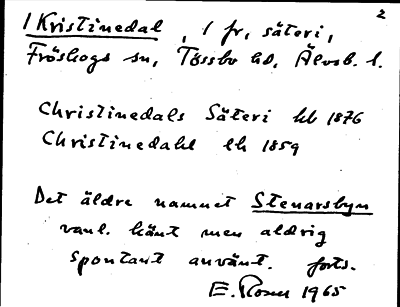 2
1 Kristinedal, 1 fr, säteri,
Fröskogs sn, Tössbo hd, Älvsb. l.
Christinedals Säteri hb 1876
Christinedahl ek 1859
Det äldre namnet Stenarsbyn
vanl. känt men aldrig
spontant använt. forts.
E. Rosen 1965